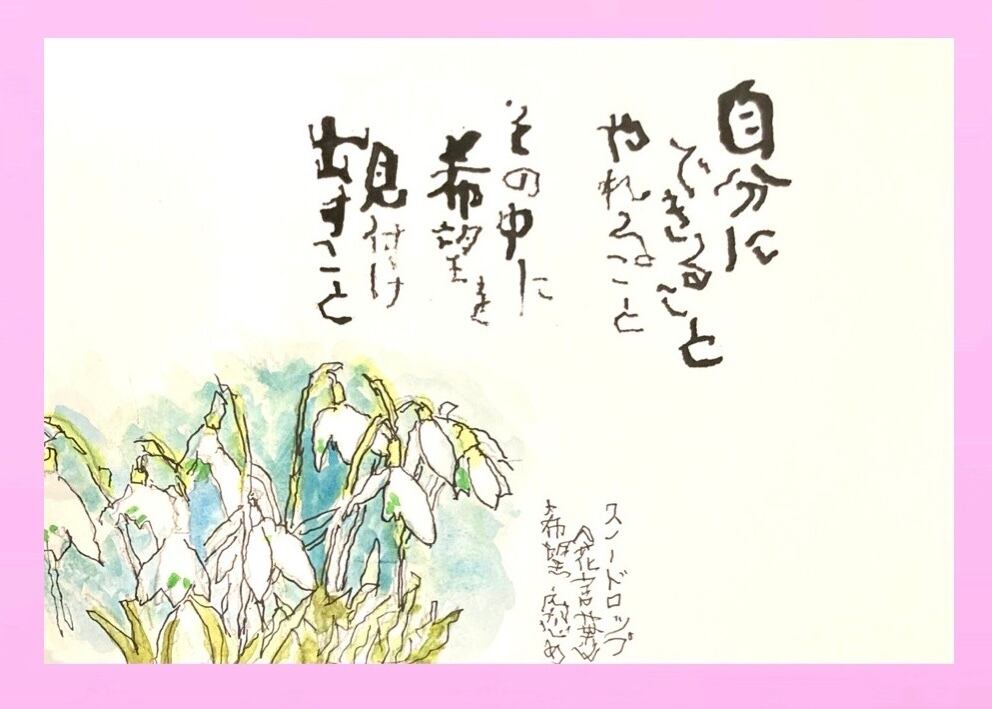 自分に
できること
やれること
その中に
希望を
見付け
出すこと
スノードロップ
《花言葉》
希望、慰め